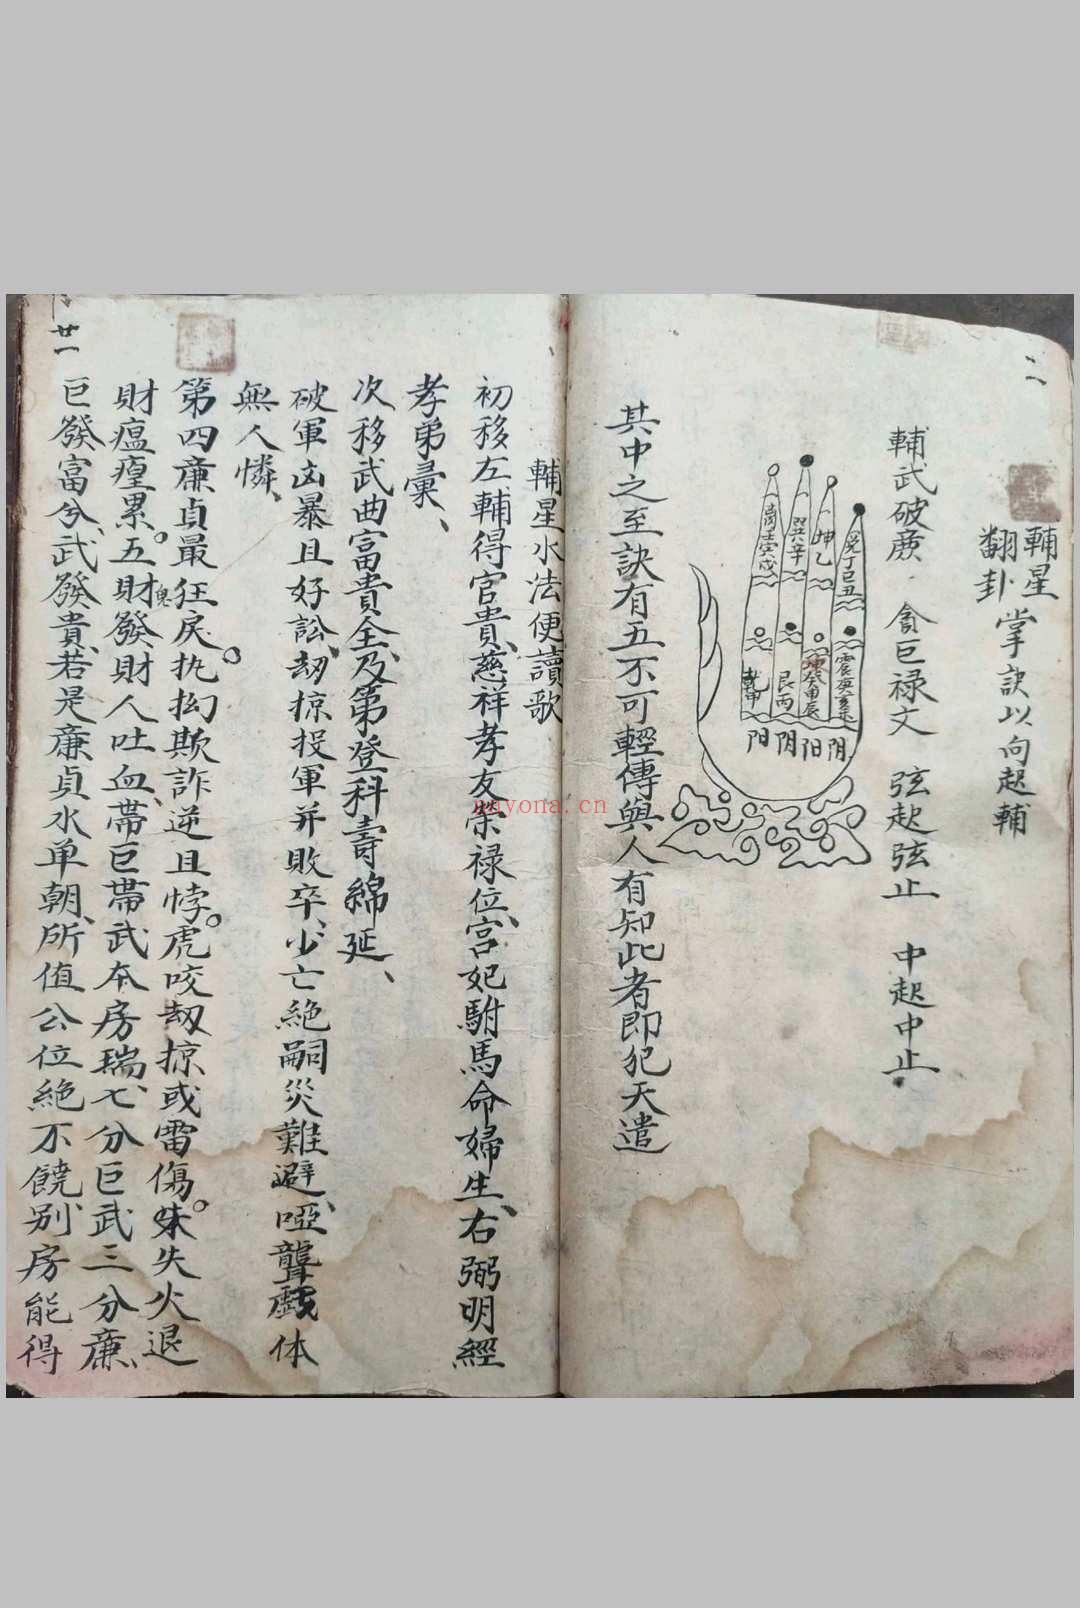 二
輔星
翻卦
掌訣以向起輔
輔武破廉 貪巨禄文 弦起弦止 中起中止
兌丁巳丑
坤乙
巽辛
震庚亥未
艮丙
阳 阴 阳 阴
其中之至訣有五不可輕傳與人有知此者即犯天遣
auyona.cn
輔星水法便讀歌
初移左輔得官貴、慈祥孝友榮禄位、宮妃駙馬命婦生、右弼明經
孝弟彙、
次移武曲富貴全、及第登科壽綿延、
破軍凶暴且好訟、刼掠投軍并敗卒、少亡絕嗣災難避、啞聾戲体
無人憐、
第四廉貞最狂戾。执拗欺詐逆且悖。虎咬刼掠或雷傷。失火退
財瘟瘟累。五鬼發財人吐血、帶巨帶武本房瑞、七分巨武三分廉、
巨發富兮、武發貴、若是廉貞水单朝、所值公位絕不饒、别房能得
廿一